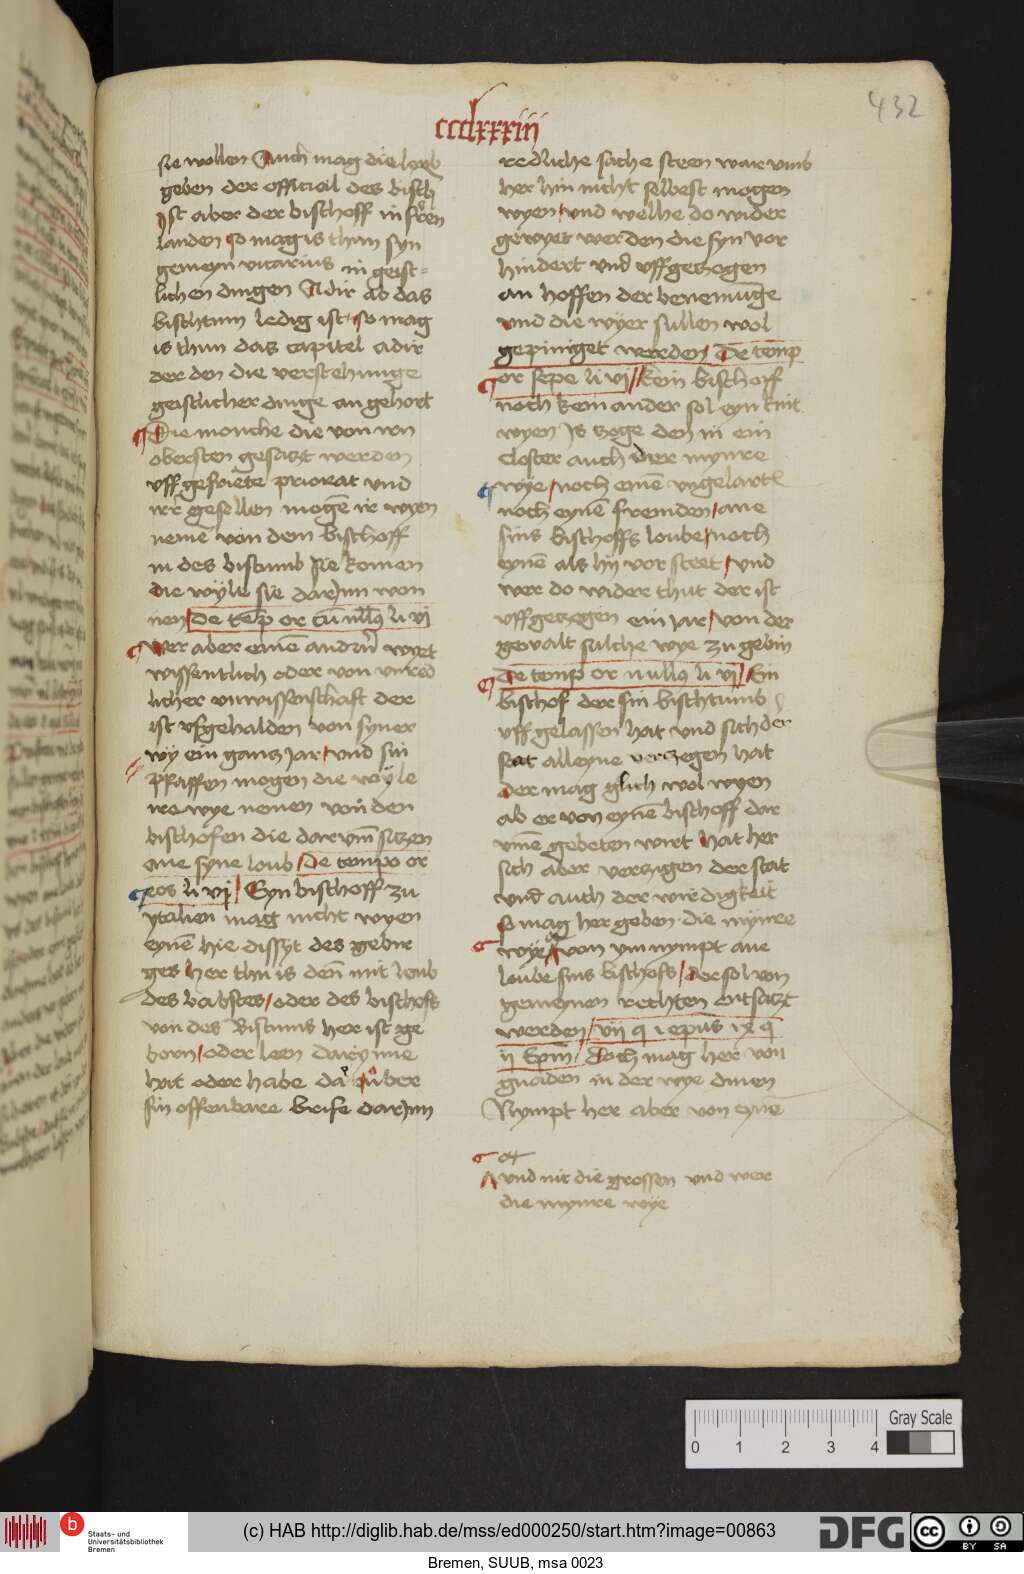 432
ccclxxxiiij
sie wollen Auch mag die loub
geben der officiail des bisch
Ist aber der bischoff in fren
landen so mag is thun syn
gemeyn vicarius in geist=
lichen dingen Adir ab das
bischtum ledig ist so mag
is thun das capitel adir
der den die verstehunge
geistlicher dinge an gehort
Die monche die von irn
obersten gesatzt werden
vff gefriete priorat und
irr gesellen mogē ir wyen
nemē von dem bischoff
in des bistumb sie komen
die wyle sie dar inn won
nen De temp or cū nllꝰ li vj
Wer aber einē andrn wyet
wissentlich oder von vnred
licher vnwissenschaft der
ist vfgehalden von syner
wy ein gantz Jar und sin
pfaffen mogen die wyle
ire wye nemen von den
bischofen die dar vm sitzen
ane syne loub De tempo or
eos li vj Eyn bischoff zu
ytalien mag nicht wyen
eynē hie dissyt des gebir
ges her thu is denn mit loub
des babstes oder des bischofs
von des Bistums her ist ge
born oder leen dar ynne
hat oder habe da über
sin offenbare brife dar inn
redliche sache steen war vmb
her hin nicht selbest mogen
wyen und welhe do wider
gewyet werden die syn vor
hindert und vffgetzogen
an hoffen der benemūge
und die wyer sullen wol
gepiniget werden De temp
or sepe li vj kein bischoff
noch kein ander sol eyn kint
wyen Is zoge den in ein
Closter auch dier mynre
wye noch einē vngelart
noch eynē fremden ane
sins bischoffs loube noch
eynē als hy vor steet und
wer do wider thut der ist
vffgetzogen ein Jar von der
gewalt sulche wye zu gebin
De temp or nullꝰ li vj Ein
bischof der sin bischtumb
vff gelassen hat und sich der
stat alleyne vertzegen hat
der mag glich wol wyen
ab er von eynē bischoff dar
vmē gebeten wirt hat her
sich aber vertzigen der stat
und auch der wirdigkeit
so mag her geben die mynre
wye von ym nympt ane
loube sins bischofs der sol von
gemeynen rechten entsatzt
werden vij q i epūs ix q
ij Epm̄ Doch mag her von
gnaden in der wye dinen
Nympt her aber von eynē
und nit die grossen und wer
die mynre wye
0 1 2 3 4
Gray Scale
Staats- und
Universitätsbibliothek
Bremen
(c) HAB http://diglib.hab.de/mss/ed000250/start.htm?image=00863
DFG
cc
BY SA
Bremen, SUUB, msa 0023